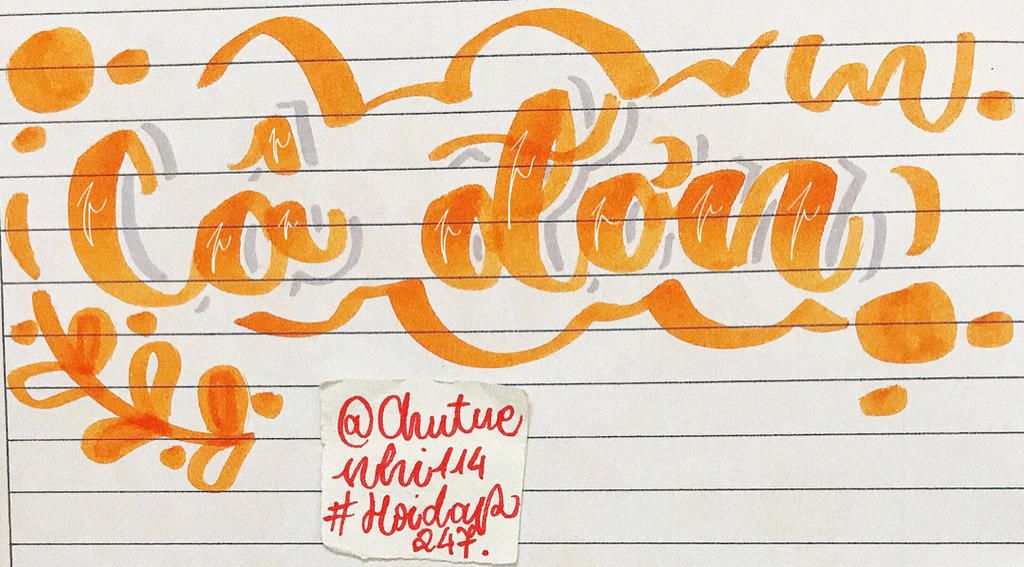 Cô đơn
@Chutue
nhi114
#Hoidap
247.